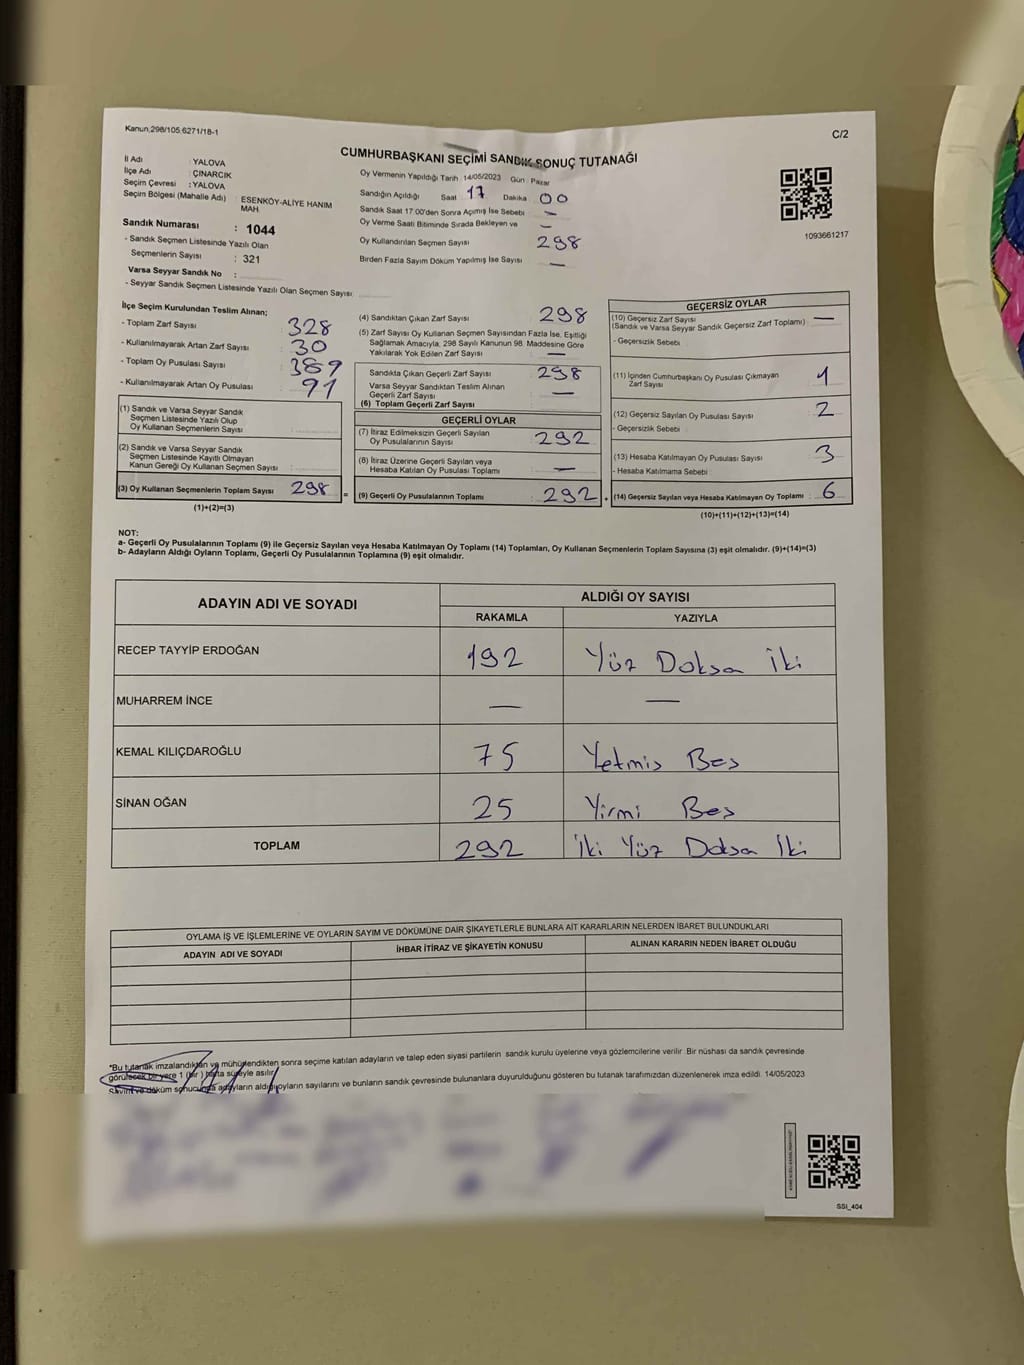 Kanun 298/105 6271/18-1
C/2
CUMHURBAŞKANI SEÇİMİ SANDIK SONUÇ TUTANAĞI
İl Adı : YALOVA
İlçe Adı : ÇINARCIK
Seçim Çevresi : YALOVA
Seçim Bölgesi (Mahalle Adı) : ESENKÖY-ALİYE HANIM MAH.
Sandık Numarası : 1044
- Sandık Seçmen Listesinde Yazılı Olan
Seçmenlerin Sayısı : 321
Varsa Seyyar Sandık No :
- Seyyar Sandık Seçmen Listesinde Yazılı Olan Seçmen Sayısı
Oy Vermenin Yapıldığı Tarih 14/05/2023 Gün : Pazar
Sandığın Açıldığı Saat 17 Dakika 00
Sandık Saat 17:00'den Sonra Açımış İse Sebebi —
Oy Verme Saati Bitiminde Sırada Bekleyen ve —
Oy Kullandırılan Seçmen Sayısı 298
Birden Fazla Sayım Döküm Yapılmış İse Sayısı —
1093661217
İlçe Seçim Kurulundan Teslim Alınan;
- Toplam Zarf Sayısı 328
- Kullanılmayarak Artan Zarf Sayısı 30
- Toplam Oy Pusulası Sayısı 389
- Kullanılmayarak Artan Oy Pusulası 91
(1) Sandık ve Varsa Seyyar Sandık
Seçmen Listesinde Yazılı Olup
Oy Kullanan Seçmenlerin Sayısı
(2) Sandık ve Varsa Seyyar Sandık
Seçmen Listesinde Kayıtlı Olmayan
Kanun Gereği Oy Kullanan Seçmen Sayısı
(3) Oy Kullanan Seçmenlerin Toplam Sayısı 298 =
(1)+(2)=(3)
(4) Sandıktan Çıkan Zarf Sayısı 298
(5) Zarf Sayısı Oy Kullanan Seçmen Sayısından Fazla İse, Eşitliği
Sağlamak Amacıyla, 298 Sayılı Kanunun 98. Maddesine Göre
Yakılarak Yok Edilen Zarf Sayısı —
Sandıkta Çıkan Geçerli Zarf Sayısı 298
Varsa Seyyar Sandıktan Teslim Alınan
Geçerli Zarf Sayısı —
(6) Toplam Geçerli Zarf Sayısı
GEÇERLİ OYLAR
(7) İtiraz Edilmeksizin Geçerli Sayılan
Oy Pusulalarının Sayısı 292
(8) İtiraz Üzerine Geçerli Sayılan veya
Hesaba Katılan Oy Pusulası Toplamı —
(9) Geçerli Oy Pusulalarının Toplamı : 292 +
GEÇERSİZ OYLAR
(10) Geçersiz Zarf Sayısı —
(Sandık ve Varsa Seyyar Sandık Geçersiz Zarf Toplamı)
- Geçersizlik Sebebi
(11) İçinden Cumhurbaşkanı Oy Pusulası Çıkmayan
Zarf Sayısı 1
(12) Geçersiz Sayılan Oy Pusulası Sayısı 2
- Geçersizlik Sebebi
(13) Hesaba Katılmayan Oy Pusulası Sayısı 3
- Hesaba Katılmama Sebebi
(14) Geçersiz Sayılan veya Hesaba Katılmayan Oy Toplamı : 6
(10)+(11)+(12)+(13)=(14)
NOT:
a- Geçerli Oy Pusulalarının Toplamı (9) ile Geçersiz Sayılan veya Hesaba Katılmayan Oy Toplamı (14) Toplamları, Oy Kullanan Seçmenlerin Toplam Sayısına (3) eşit olmalıdır. (9)+(14)=(3)
b- Adayların Aldığı Oyların Toplamı, Geçerli Oy Pusulalarının Toplamına (9) eşit olmalıdır.
ADAYIN ADI VE SOYADI
ALDIĞI OY SAYISI
RAKAMLA YAZIYLA
RECEP TAYYİP ERDOĞAN 192 Yüz Doksa İki
MUHARREM İNCE — —
KEMAL KILIÇDAROĞLU 75 Yetmis Bes
SİNAN OĞAN 25 Yirmi Bes
TOPLAM 292 İki Yüz Doksa İki
OYLAMA İŞ VE İŞLEMLERİNE VE OYLARIN SAYIM VE DÖKÜMÜNE DAİR ŞİKAYETLERLE BUNLARA AİT KARARLARIN NELERDEN İBARET BULUNDUKLARI
ADAYIN ADI VE SOYADI İHBAR İTİRAZ VE ŞİKAYETİN KONUSU ALINAN KARARIN NEDEN İBARET OLDUĞU
*Bu tutanak imzalandıktan ve mühürlendikten sonra seçime katılan adayların ve talep eden siyasi partilerin sandık kurulu üyelerine veya gözlemcilerine verilir. Bir nüshası da sandık çevresinde
görülecek bir yere 1 (bir) hafta süreyle asılır.
Sayım ve döküm sonucunda adayların aldığı oyların sayılarını ve bunların sandık çevresinde bulunanlara duyurulduğunu gösteren bu tutanak tarafımızdan düzenlenerek imza edildi. 14/05/2023
SSI_404